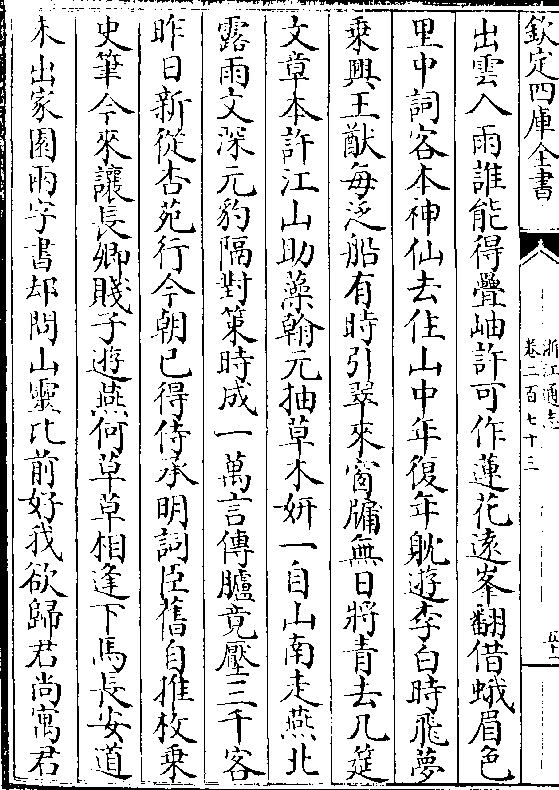 欽定四庫全書
浙江通志
卷二百七十三
五十一
出雲入雨誰能得疊岫許可作蓮花遠峯翻借蛾眉色
里中詞客本神仙去住山中年復年躭遊李白時飛夢
乗興王猷每泛船有時引翠來窗牖無日將青去几筵
文章本許江山助藻翰元抽草木妍一自山南走燕北
露雨文深元豹隔對策時成一萬言傳臚竟壓三千客
昨日新從杏苑行今朝已得侍承明詞臣舊自推枚乗
史筆今來讓長卿賤子遊燕何草草相逢下馬長安道
未出家園兩字書却問山靈比前好我欲歸君尚寓君